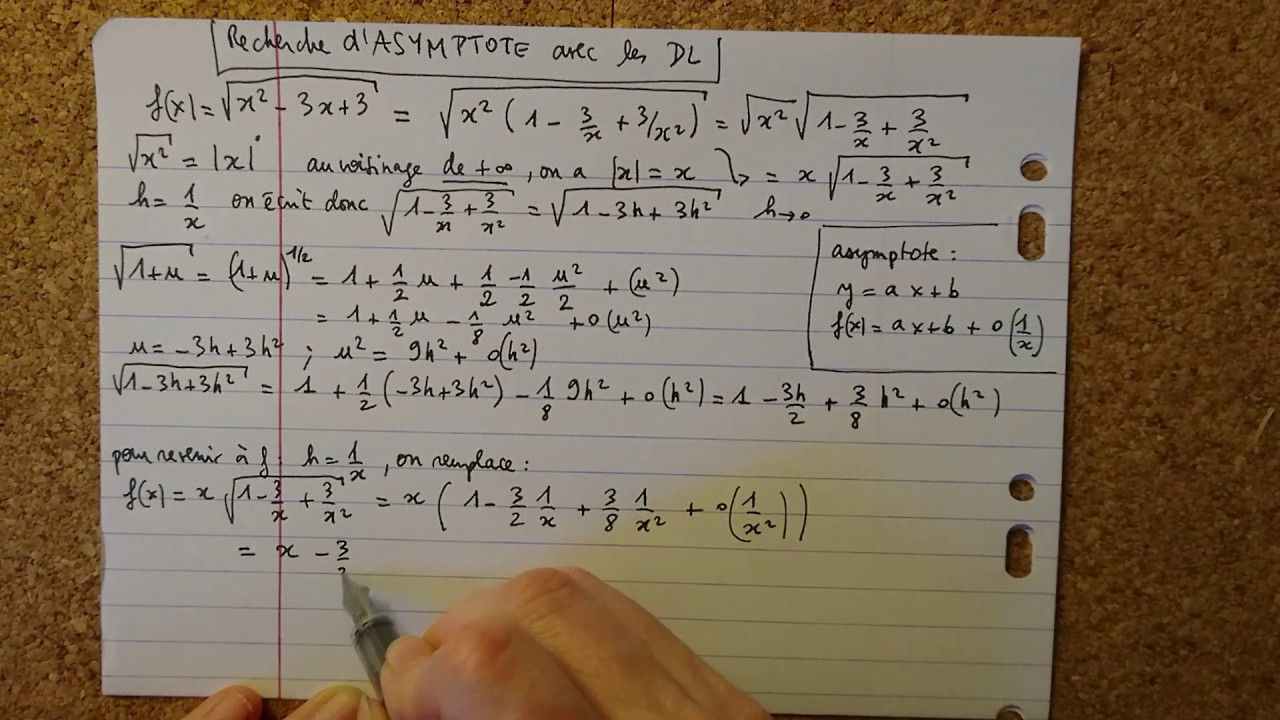 Recherche d'ASYMPTOTE avec les DL
f(x) = √(x² - 3x + 3) = √(x² (1 - 3/x + 3/x²)) = √(x²) √(1 - 3/x + 3/x²)
√(x²) = |x| au voisinage de +∞, on a |x| = x ↘ = x √(1 - 3/x + 3/x²)
h = 1/x on écrit donc √(1 - 3/x + 3/x²) = √(1 - 3h + 3h²) h→0
√(1+u) = (1+u)^(1/2) = 1 + 1/2 u + 1/2 -1/2 u²/2 + (u²)
= 1 + 1/2 u - 1/8 u² + o(u²)
asymptote :
y = ax + b
f(x) = ax + b + o(1/x)
u = -3h + 3h² ; u² = 9h² + o(h²)
√(1 - 3h + 3h²) = 1 + 1/2 (-3h + 3h²) - 1/8 9h² + o(h²) = 1 - 3h/2 + 3/8 h² + o(h²)
pour revenir à f h = 1/x, on remplace :
f(x) = x √(1 - 3/x + 3/x²) = x (1 - 3/2 1/x + 3/8 1/x² + o(1/x²))
= x - 3/2